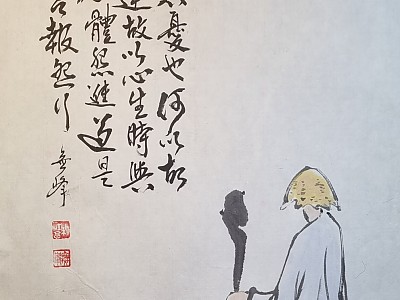 憂也何以故
達故此心生時與
體怨進道是
言報怨行
無峰